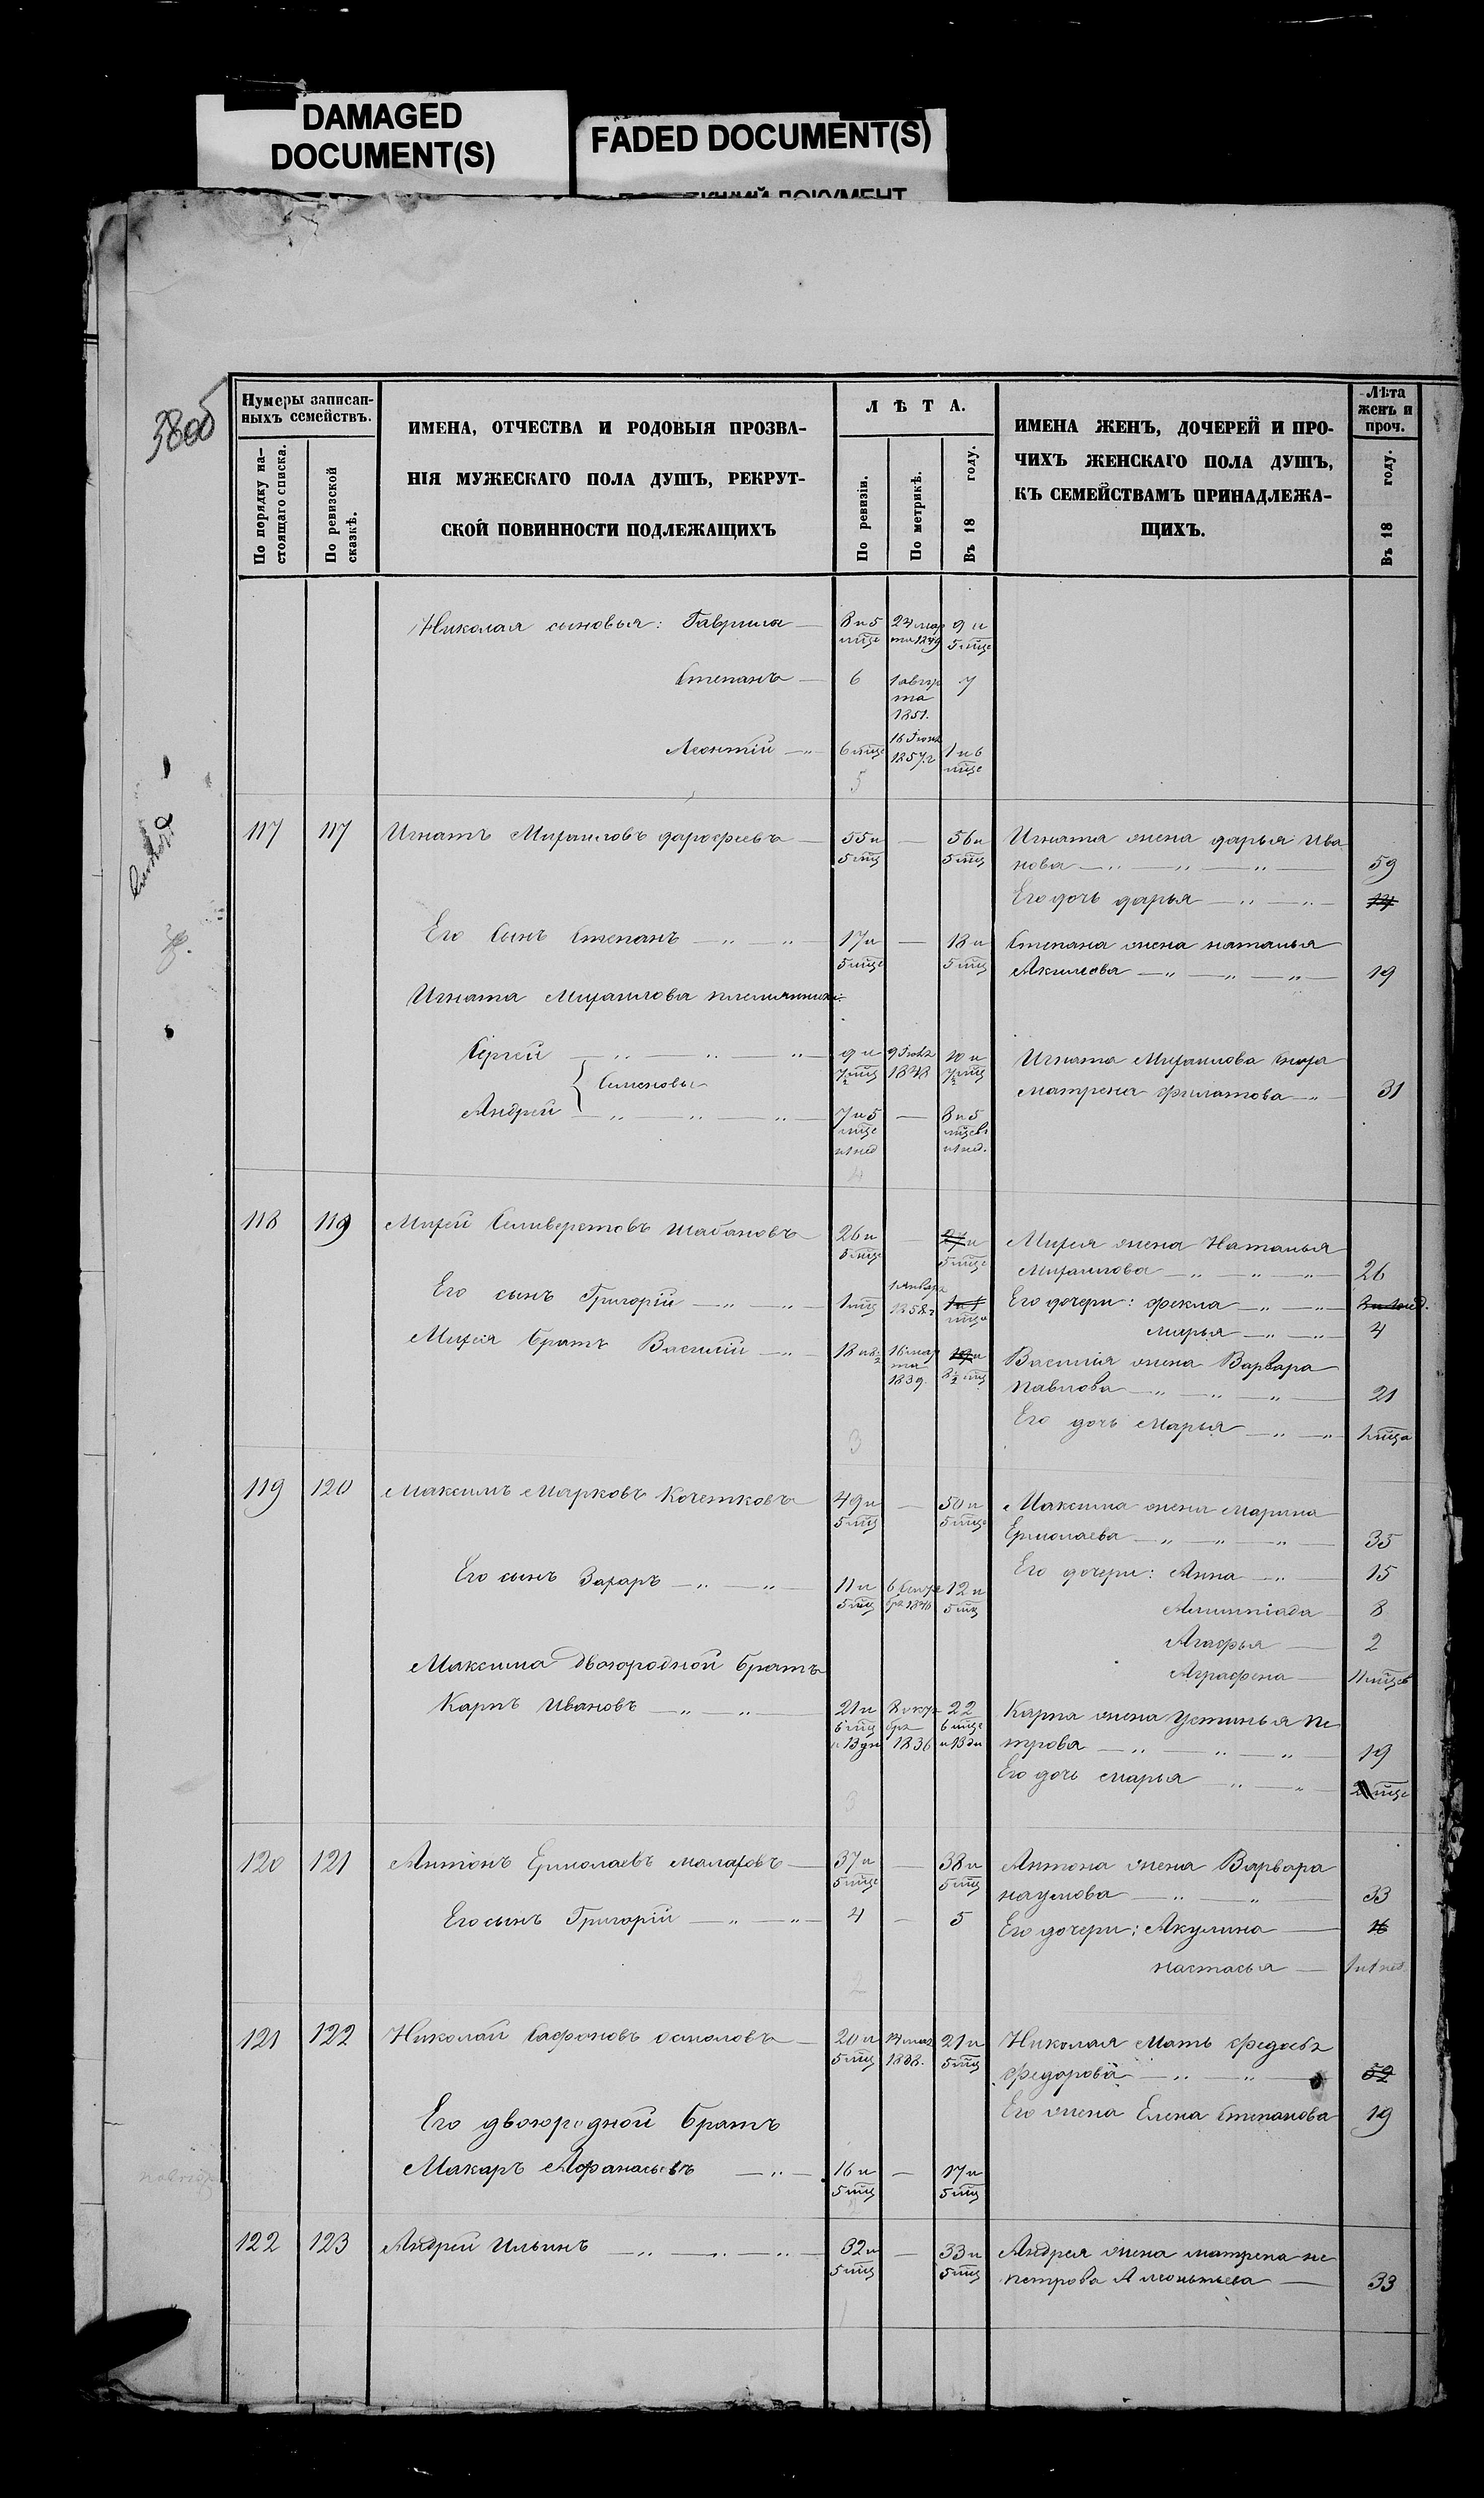 DAMAGED
DOCUMENT(S)
FADED DOCUMENT(S)
3800
Нумеры записан-
ныхъ семействъ.
По порядку на-
стоящаго списка.
По ревизской
сказкѣ.
ИМЕНА, ОТЧЕСТВА И РОДОВЫЯ ПРОЗВА-
НІЯ МУЖЕСКАГО ПОЛА ДУШЪ, РЕКРУТ-
СКОЙ ПОВИННОСТИ ПОДЛЕЖАЩИХЪ
ЛѢТА.
По ревизіи.
По метрикѣ.
Въ 18 году.
ИМЕНА ЖЕНЪ, ДОЧЕРЕЙ И ПРО-
ЧИХЪ ЖЕНСКАГО ПОЛА ДУШЪ,
КЪ СЕМЕЙСТВАМЪ ПРИНАДЛЕЖА-
ЩИХЪ.
Лѣта
женъ и
проч.
Въ 18 году.
Николая сыновья: Гаврила 8 и 5 мце 24 мар та 1849 9 и 5 мце
Степанъ 6 1 авгу ста 1851. 7
Леонтій 6 мце 16 Іюня 1857 г 1 и 6 мце
5
117 117 Игнатъ Михаиловъ дарофеевъ 55 и 5 мц — 56 и 5 мц Игната жена дарья Ива
нова 59
Его дочь дарья 14
Его Сынъ Степанъ 17 и 5 мце — 18 и 5 мц Степана жена наталья
Акимова 19
Игната Михаилова племянники:
Сергей 9 и 7½ мц 9 Іюня 1848 10 и 7½ мц Игната Михаилова сноха
Семеновы
матрена филатова 31
Андрей 7 и 5 мце и 1 нед — 8 и 5 мцевъ и 1 нед.
4
118 119 Михей Селиверстовъ шабановъ 26 и 5 мце — 27 и 5 мце Михея жена Наталья
Михаилова 26
Его сынъ Григорій 1 мц 1 января 1858 г 1 и 1 мца Его дочери: фекла
марья 4
Михея братъ Василий 18 и 8½ 16 мар та 1839. 19 и 8½ мц Василія жена Варвара
Павлова 21
Его дочь Марья 1 мца
3
119 120 Максимъ Марковъ Кочетковъ 49 и 5 мц — 50 и 5 мце Максима жена Марина
Ермолаева 35
Его сынъ Захаръ 11 и 5 мц 12 и 5 мц Его дочери: Анна 15
Алимпіада 8
Агафья 2
Аграфена 11 мцев
Максима двоюродной братъ
Карпъ Ивановъ 21 и 6 мц и 13 дн 1836 22 6 мце и 13 дн Карпа жена Устинья Пе
трова 19
Его дочь марья
3
120 121 Антонъ Ермолаевъ малаховъ 37 и 5 мце — 38 и 5 мц Антона жена Варвара
наумова 33
Его сынъ Григорій 4 — 5 Его дочери: Акулина 16
настасья 1 и 1 нед.
2
121 122 Николай Сафоновъ осиповъ 20 и 5 мц 1838. 21 и 5 мц Николая Мать федосья
федорова 52
Его жена Елена Степанова 19
Его двоюродной братъ
Макаръ Афанасьевъ 16 и 5 мц — 17 и 5 мц
2
122 123 Андрей Ильинъ 32 и 5 мц — 33 и 5 мц Андрея жена матрена не
петрова А леонтьева 33
1